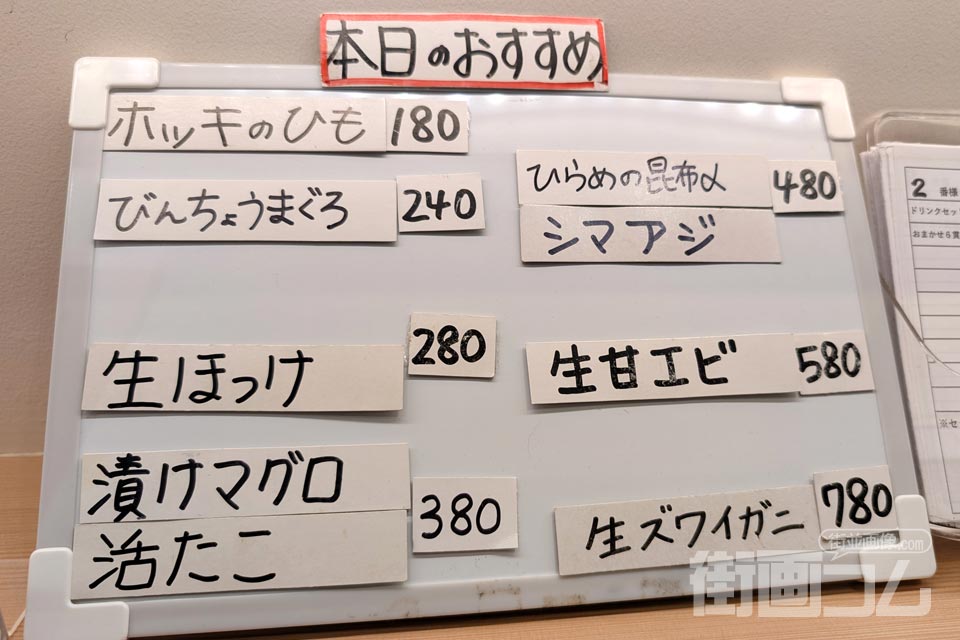 本日のおすすめ
ホッキのひも 180
びんちょうまぐろ 240
生ほっけ 280
漬けマグロ
活たこ 380
ひらめの昆布〆 480
シマアジ
生甘エビ 580
生ズワイガニ 780
2 番様
ドリンクセッ
おまかせ6貫
※セ
街画像.com
街画コム